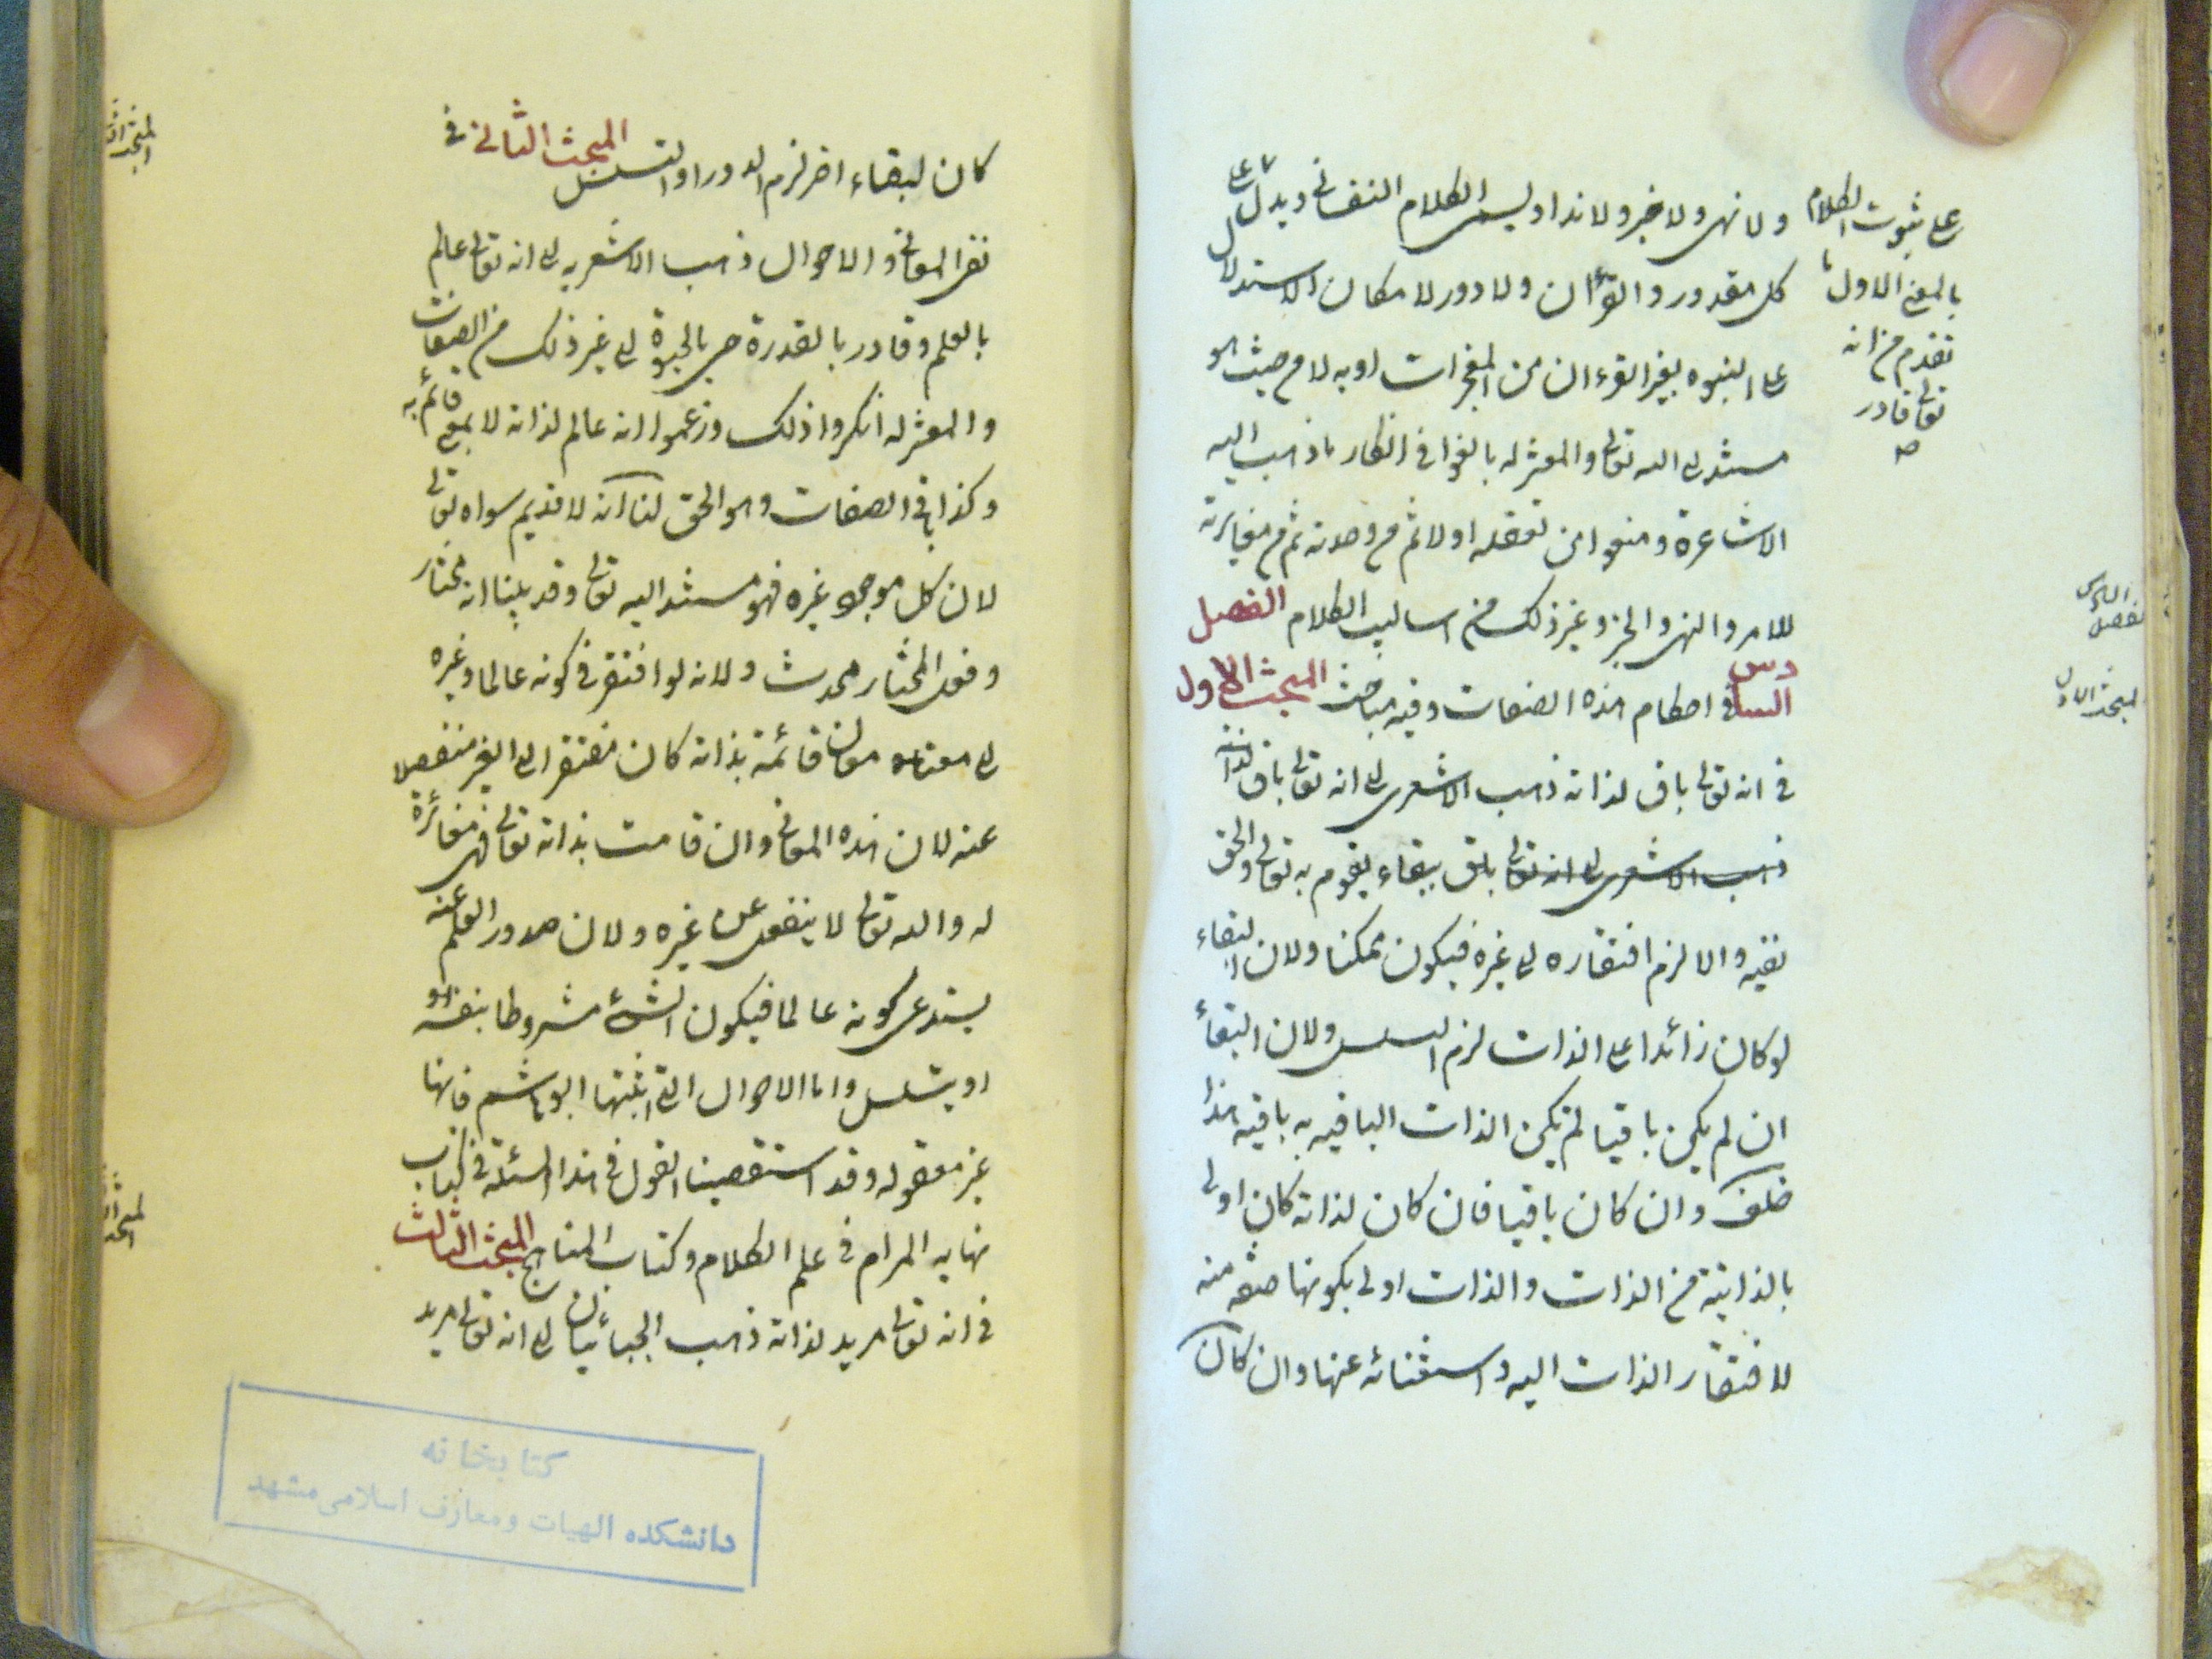 ولا نهى ولا خبر ولا ندا وليسمى الكلام النفسانى ويدل على
كل مقدور والقرآن ولا دور لامكان الاستدلال
على النبوه بغير القرءان من المعجزات او به لا من حيث هو
مستند الى الله تعالى والمعتزله بالغوا فى انكار ما ذهب اليه
الاشاعرة ومنعوا من تعقله اولا ثم من وحدته ثم من مغايرته
للامر والنهى والخبر وغير ذلك من اساليب الكلام الفصل
السادس فى احكام هذه الصفات وفيه مباحث المبحث الاول
فى انه تعالى باق لذاته ذهب الاشعرى الى انه تعالى باق لذاته
ذهب الاشعرى الى انه تعالى باق ببقاء يقوم به تعالى والحق
نفيه والا لزم افتقاره الى غيره فيكون ممكنا ولان البقاء
لو كان زائدا على الذات لزم التسلسل ولان البقاء
ان لم يكن باقيا لم يكن الذات الباقيه به باقيه هذا
خلف وان كان باقيا فان كان لذاته كان اولى
بالذاتية من الذات والذات اولى بكونها صفه منه
لافتقار الذات اليه واستغنائه عنها وان كان
على ثبوت الكلام
بالمعنى الاول ما
تقدم من انه
تعالى قادر
صح
الفصل السادس
المبحث الاول
كان لبقاء اخر لزم الدور او التسلسل المبحث الثانى فى
نفى المعانى والاحوال ذهب الاشعريه الى انه تعالى عالم
بالعلم وقادر بالقدرة حى بالحيوة الى غير ذلك من الصفات
والمعتزله انكروا ذلك وزعموا انه عالم لذاته لا بمعنى قائم به
وكذا باقى الصفات وهو الحق لنا انه لا قديم سواه تعالى
لان كل موجود غيره فهو مستند اليه تعالى وقد بينا انه مختار
وفعل المختار محدث ولانه لو افتقر فى كونه عالما وغيره
الى معان قائمة بذاته كان مفتقرا الى الغير منفصلا
عنه لان هذه المعانى وان قامت بذاته تعالى فهى مغائرة
له والله تعالى لا ينفعل عن غيره ولان صدور العلم عنه
يستدعى كونه عالما فيكون الشئ مشروطا بنفسه
او يتسلسل واما الاحوال التى اثبتها ابو هاشم فانها
غير معقوله وقد استقصينا القول فى هذا المسئلة فى كتاب
نهايه المرام فى علم الكلام وكتاب المناهج المبحث الثالث
فى انه تعالى مريد لذاته ذهب الجبائيان الى انه تعالى مريد
كتابخانه
دانشكده الهيات ومعارف اسلامى مشهد